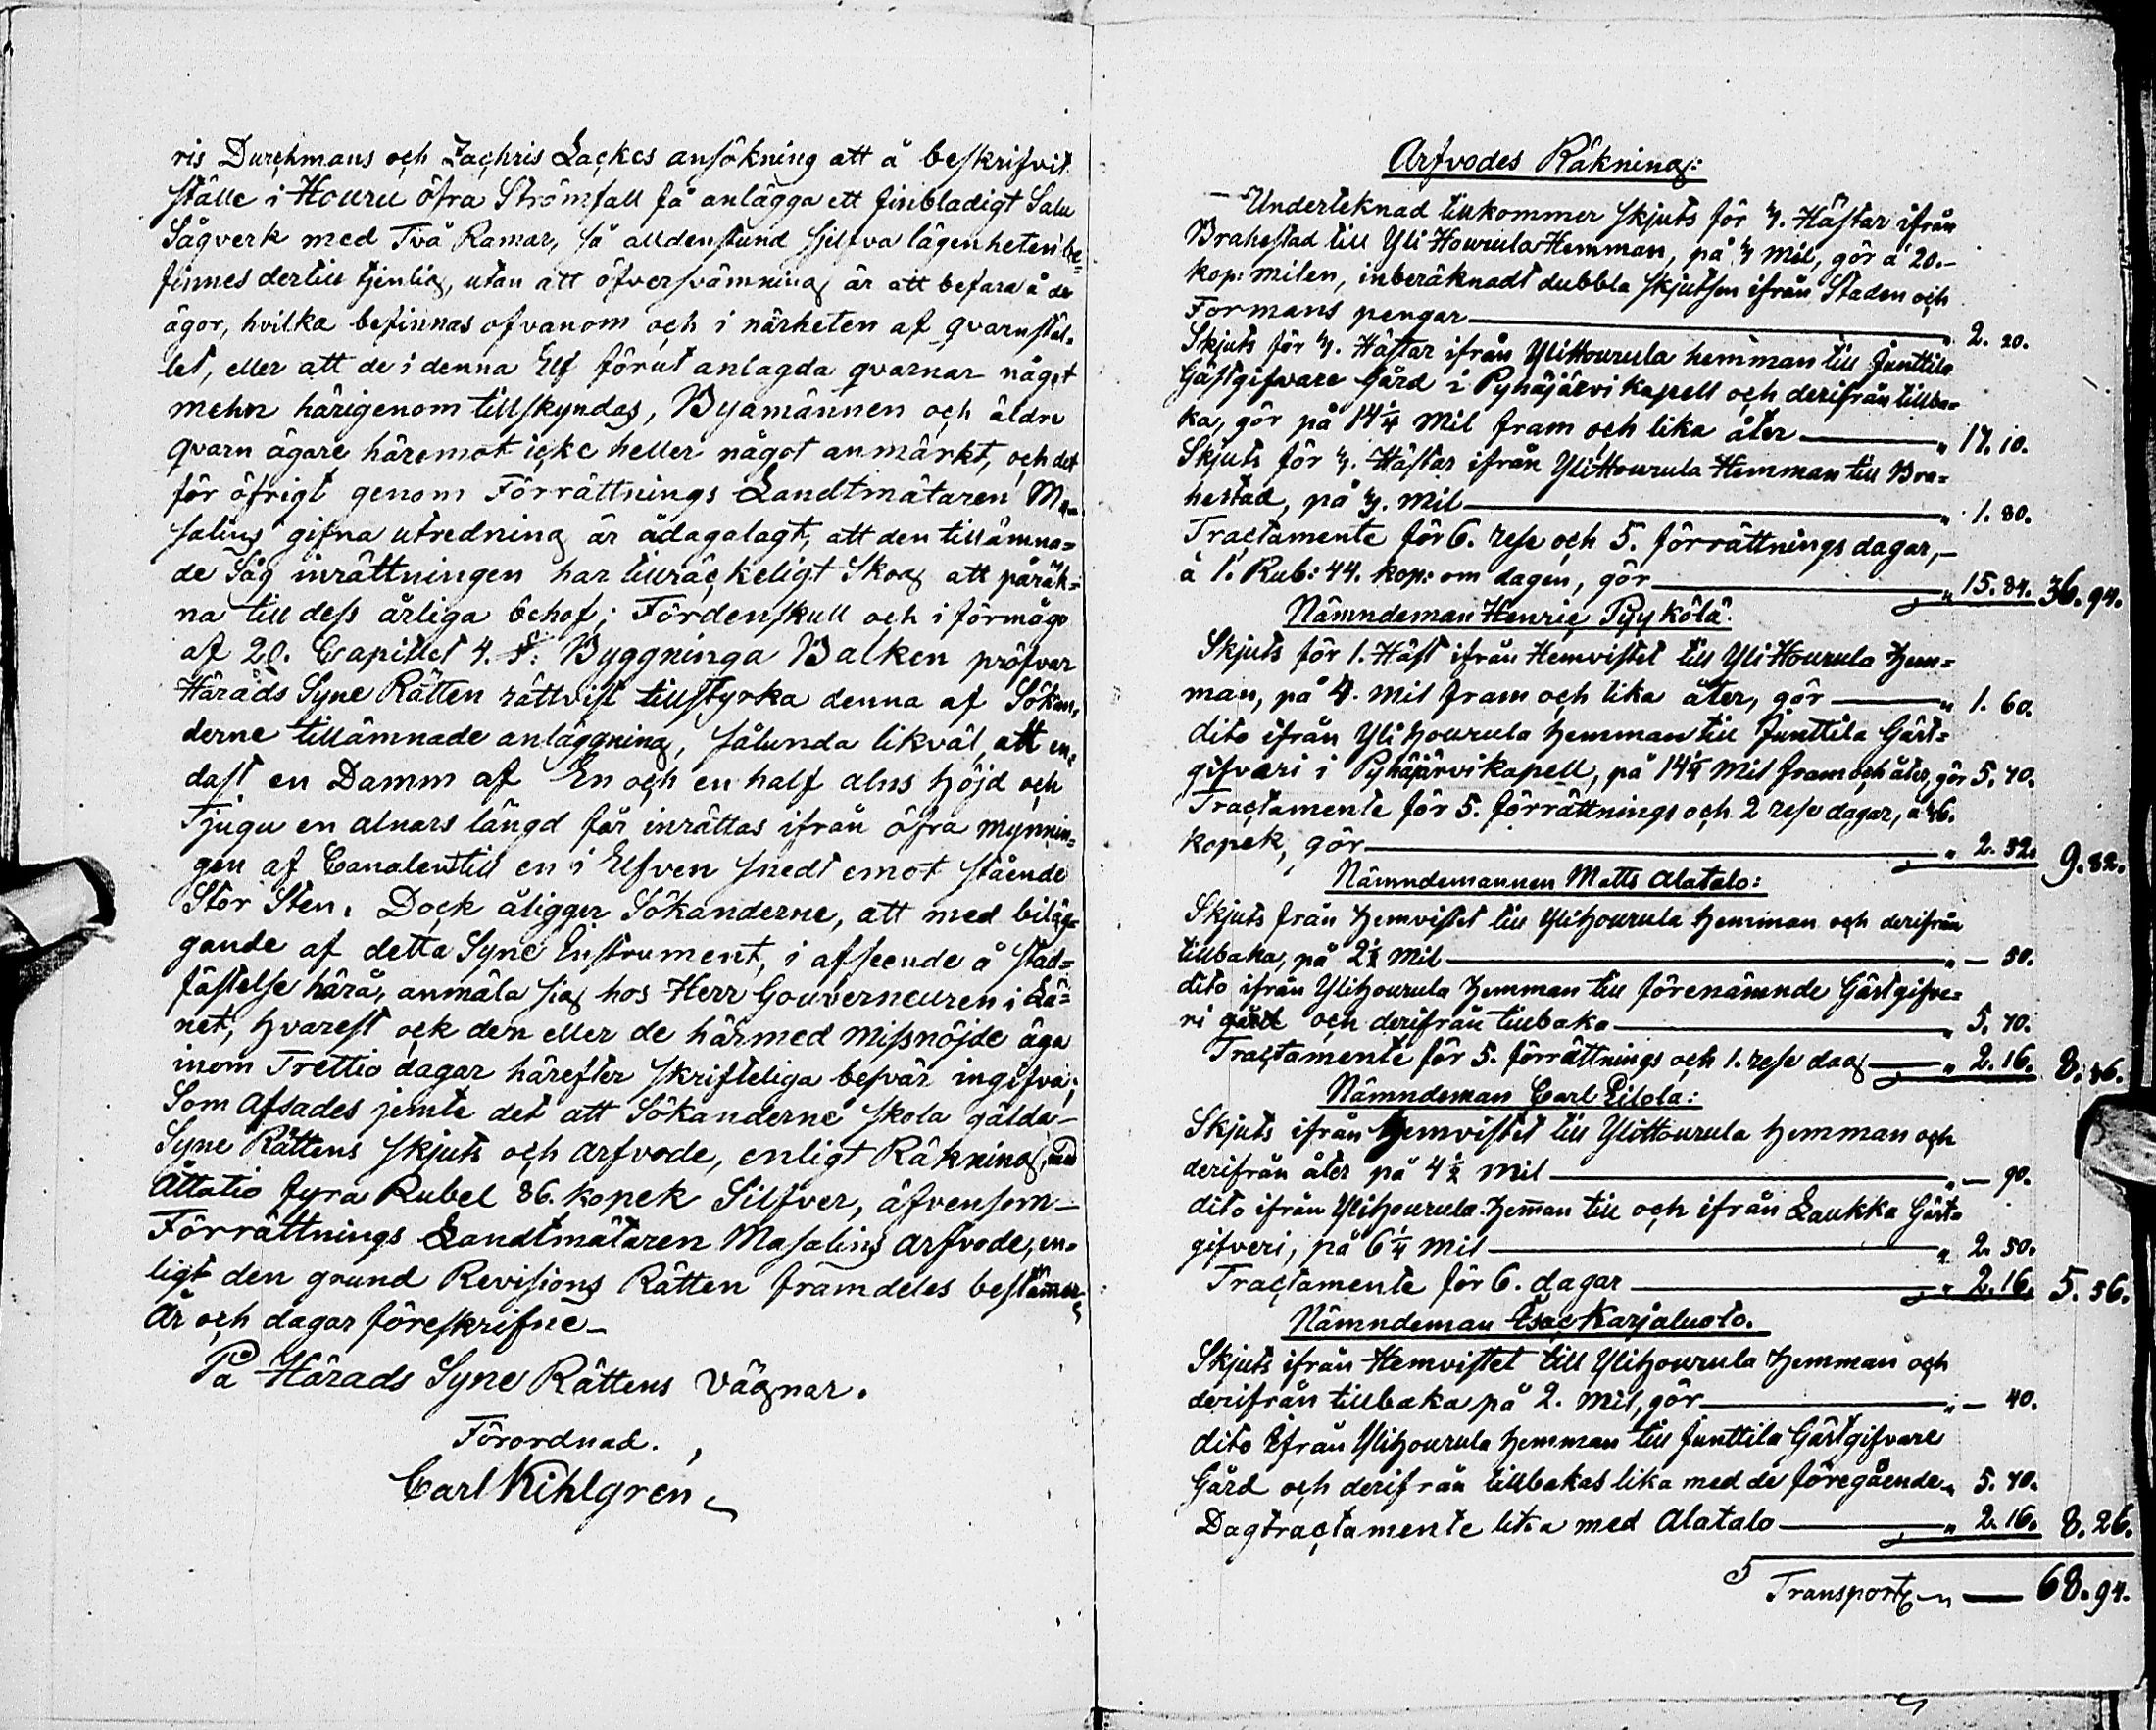 ris Durchmans och Zachris Lackes ansökning att å beskrifvit
ställe i Houru öfra Strömfall få anlägga ett finbladigt Salu
Sågverk med Två Ramar, så alldenstund sjelfva lägenheten be=
finnes dertill tjenlig, utan att öfversvämning är att befara å de
ägor, hvilka befinnas ofvanom och i närheten af qvarnstäl=
let, eller att de i denna Elf förut anlagda qvarnar något
mehn härigenom tillskyndas, Byamännen och äldre
qvarn ägare häremot icke heller något anmärkt, och det
för öfrigt genom Förrättnings Landtmätaren Ma=
salins gifna utredning är ådagalagt, att den tillämna=
de Såg inrättningen har tillräckeligt Skog att påräk=
na till dess årliga behof; Fördenskull och i förmågo
af 20. Capitlet 4. §: Byggninga Balken pröfvar
Härads Syne Rätten rättvist tillstyrka denna af Sökan=
derne tillämnade anläggning, sålunda likväl, att en=
dast en Damm af En och en half alns höjd och
Tjugu en alnars längd får inrättas ifrån öfra mynnin=
gen af Canalen till en i Elfven snedt emot stående
Stor Sten. Dock åligger Sökanderne, att med biläg=
gande af detta Syne Instrument, i afseende å stad=
fästelse härå, anmäla sig hos Herr Gouverneuren i Lä=
net, hvarest ock den eller de härmed missnöjde äga
inom Trettio dagar härefter skrifteliga besvär ingifva;
Som afsades jemte det att Sökanderne skola gälda
Syne Rättens skjuts och arfvode, enligt Räkning, med
Åttatio fyra Rubel 86. kopek Silfver, äfvensom
Förrättnings Landtmätaren Masalins arfvode, en=
ligt den grund Revisions Rätten framdeles bestämmer,
År och dagar föreskrifne
På Härads Syne Rättens vägnar.
Förordnad.
Carl Kihlgren
Arfvodes Räkning:
Underteknad tillkommer skjuts för Hästar ifrån
Brahestad till Yli Hourula Hemman, på mil, gör á 20.
kop: milen, inberäknadt dubbla skjutsen ifrån Staden och
Formans pengar 2. 20.
Skjuts för Hästar ifrån Yli Hourula hemman till Junttila
Gästgifvare Gård i Pyhäjärvi Kapell och derifrån tillba=
ka, gör på 14 1/4 Mil fram och lika åter " 17. 10.
Skjuts för Hästar ifrån Yli Hourula Hemman till Bra=
hestad, på mil " 1. 80.
Tractamente för 6. rese och 5. förrättnings dagar,
à 1. Rub: 44. kop: om dagen, gör " 15. 84. 36. 94.
Nämndeman Henric Pyykölä:
Skjuts för 1. Häst ifrån Hemvistet till Yli Hourula Hem=
man, på 4. mil fram och lika åter, gör " 1. 60.
dito ifrån Yli Hourula Hemman till Junttila Gäst=
gifveri i Pyhäjärvi kapell, på 14 1/4 mil fram och åter, gör 5. 70.
Tractamente för 5. förrättnings och 2 rese dagar, à 36.
kopek, gör " 2. 52. 9. 82.
Nämndemannen Matts Alatalo:
Skjuts från Hemvistet till Yli Hourula Hemman och derifrån
tillbaka, på 2 1/2 mil " — 50.
dito ifrån Yli Hourula Hemman till förenämnde Gästgifve=
ri gård och derifrån tillbaka " 5. 70.
Tractamente för 5. förrättnings och 1. rese dag " 2. 16. 8. 36.
Nämndeman Carl Eilola:
Skjuts ifrån Hemvistet till Yli Hourula Hemman och
derifrån åter på 4 1/2 mil " — 90.
dito ifrån Yli Hourula Hem̄an till och ifrån Laukka Gäst=
gifveri, på 6 1/4 mil " 2. 50.
Tractamente för 6. dagar " 2. 16. 5. 56.
Nämndeman Isac Karjaluoto.
Skjuts ifrån Hemvistet till Yli Hourula Hemman och
derifrån tillbaka på 2. mil, gör " — 40.
dito Ifrån Yli Hourula Hemman till Junttila Gästgifvare
Gård och derifrån tillbakas lika med de föregående " 5. 70.
Dagtractamente lika med Alatalo " 2. 16. 8. 26.
Transport — 68. 94.